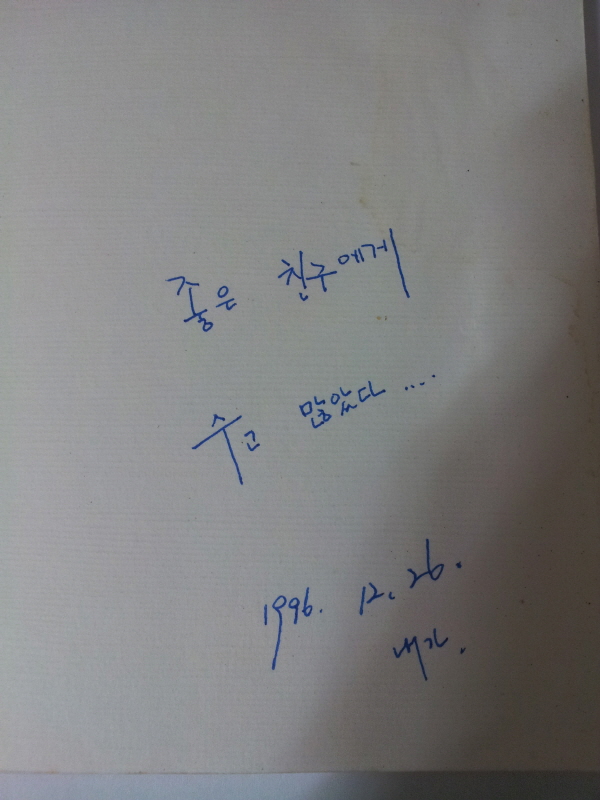 좋은 친구에게
수고 많았다 ....
1996. 12. 26.
내가.